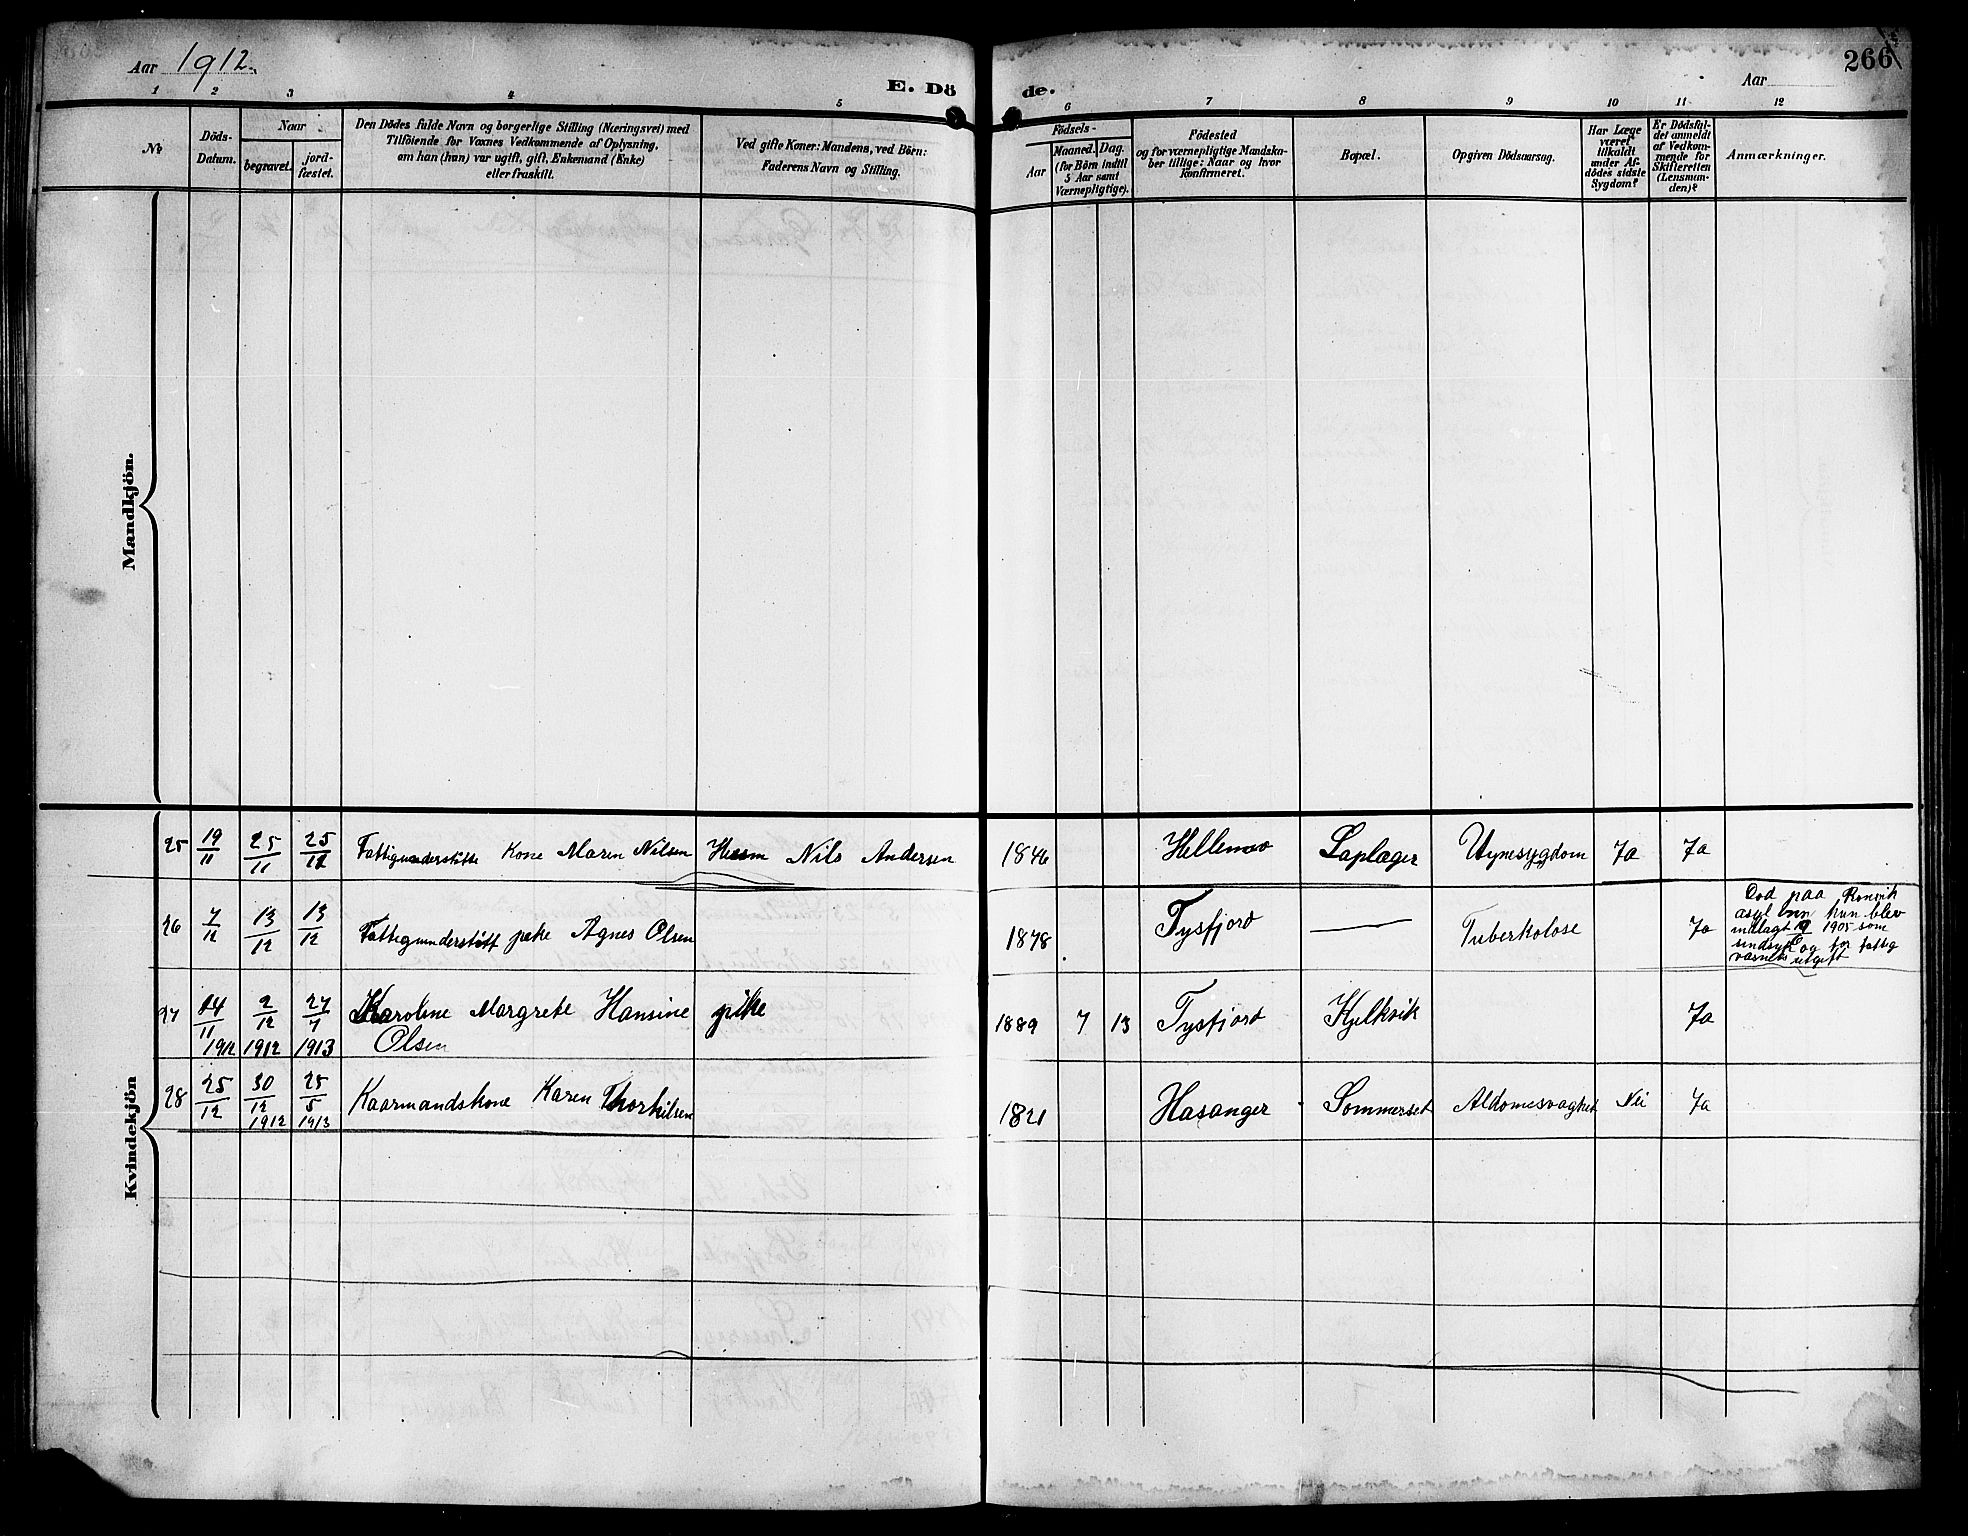 Aar 1912.
E. Dö
de.
Aar
266
1 2 3 4 5 6 7 8 9 10 11 12
No
Döds-
Datum.
Naar
begravet.
jord-
fæstet.
Den Dödes fulde Navn og borgerlige Stilling (Næringsvei) med
Tilföiende for Voxnes Vedkommende af Oplysning,
om han (hun) var ugift, gift, Enkemand (Enke)
eller fraskilt.
Ved gifte Koner: Mandens, ved Börn:
Faderens Navn og Stilling.
Födsels-
Aar
Maaned. Dag.
(for Börn indtil
5 Aar samt
Værnepligtige).
Födested
og for værnepligtige Mandska-
ber tillige: Naar og hvor
Konfirmeret.
Bopæl.
Opgiven Dödsaarsag.
Har Læge
været
tilkaldt
under Af-
dödes sidste
Sygdom?
Er Dödsfal-
det anmeldt
af Vedkom-
mende for
Skifteretten
(Lensman-
den)?
Anmærkninger.
Mandkjön.
Kvindekjön
25 19/11 25/11 25/11 Fattigunderstütte Kone Maren Nilsen Nils Andersen 1846 Hellemo Laplæger Ja Ja
26 7/12 13/12 13/12 Fattigunderstøtt pike Agnes Olsen 1878 Tysfjord — Tuberkolose Ja
Død paa Rønvik
asyl hun blev
indlagt 1905 som
sindsyk og for fattig
væsnets utgift
27 14/11 1912 2/12 1912 27/7 1913 Karoline Margrete Hansine pike 1889 7 13 Tysfjord Kjelkvik Ja
Olsen
28 25/12 30/12 1912 25/5 1913 Kaarmandskone Karen Thorkilsen 1821 Hasanger Sommerset Aldomesvaghet Nei Ja